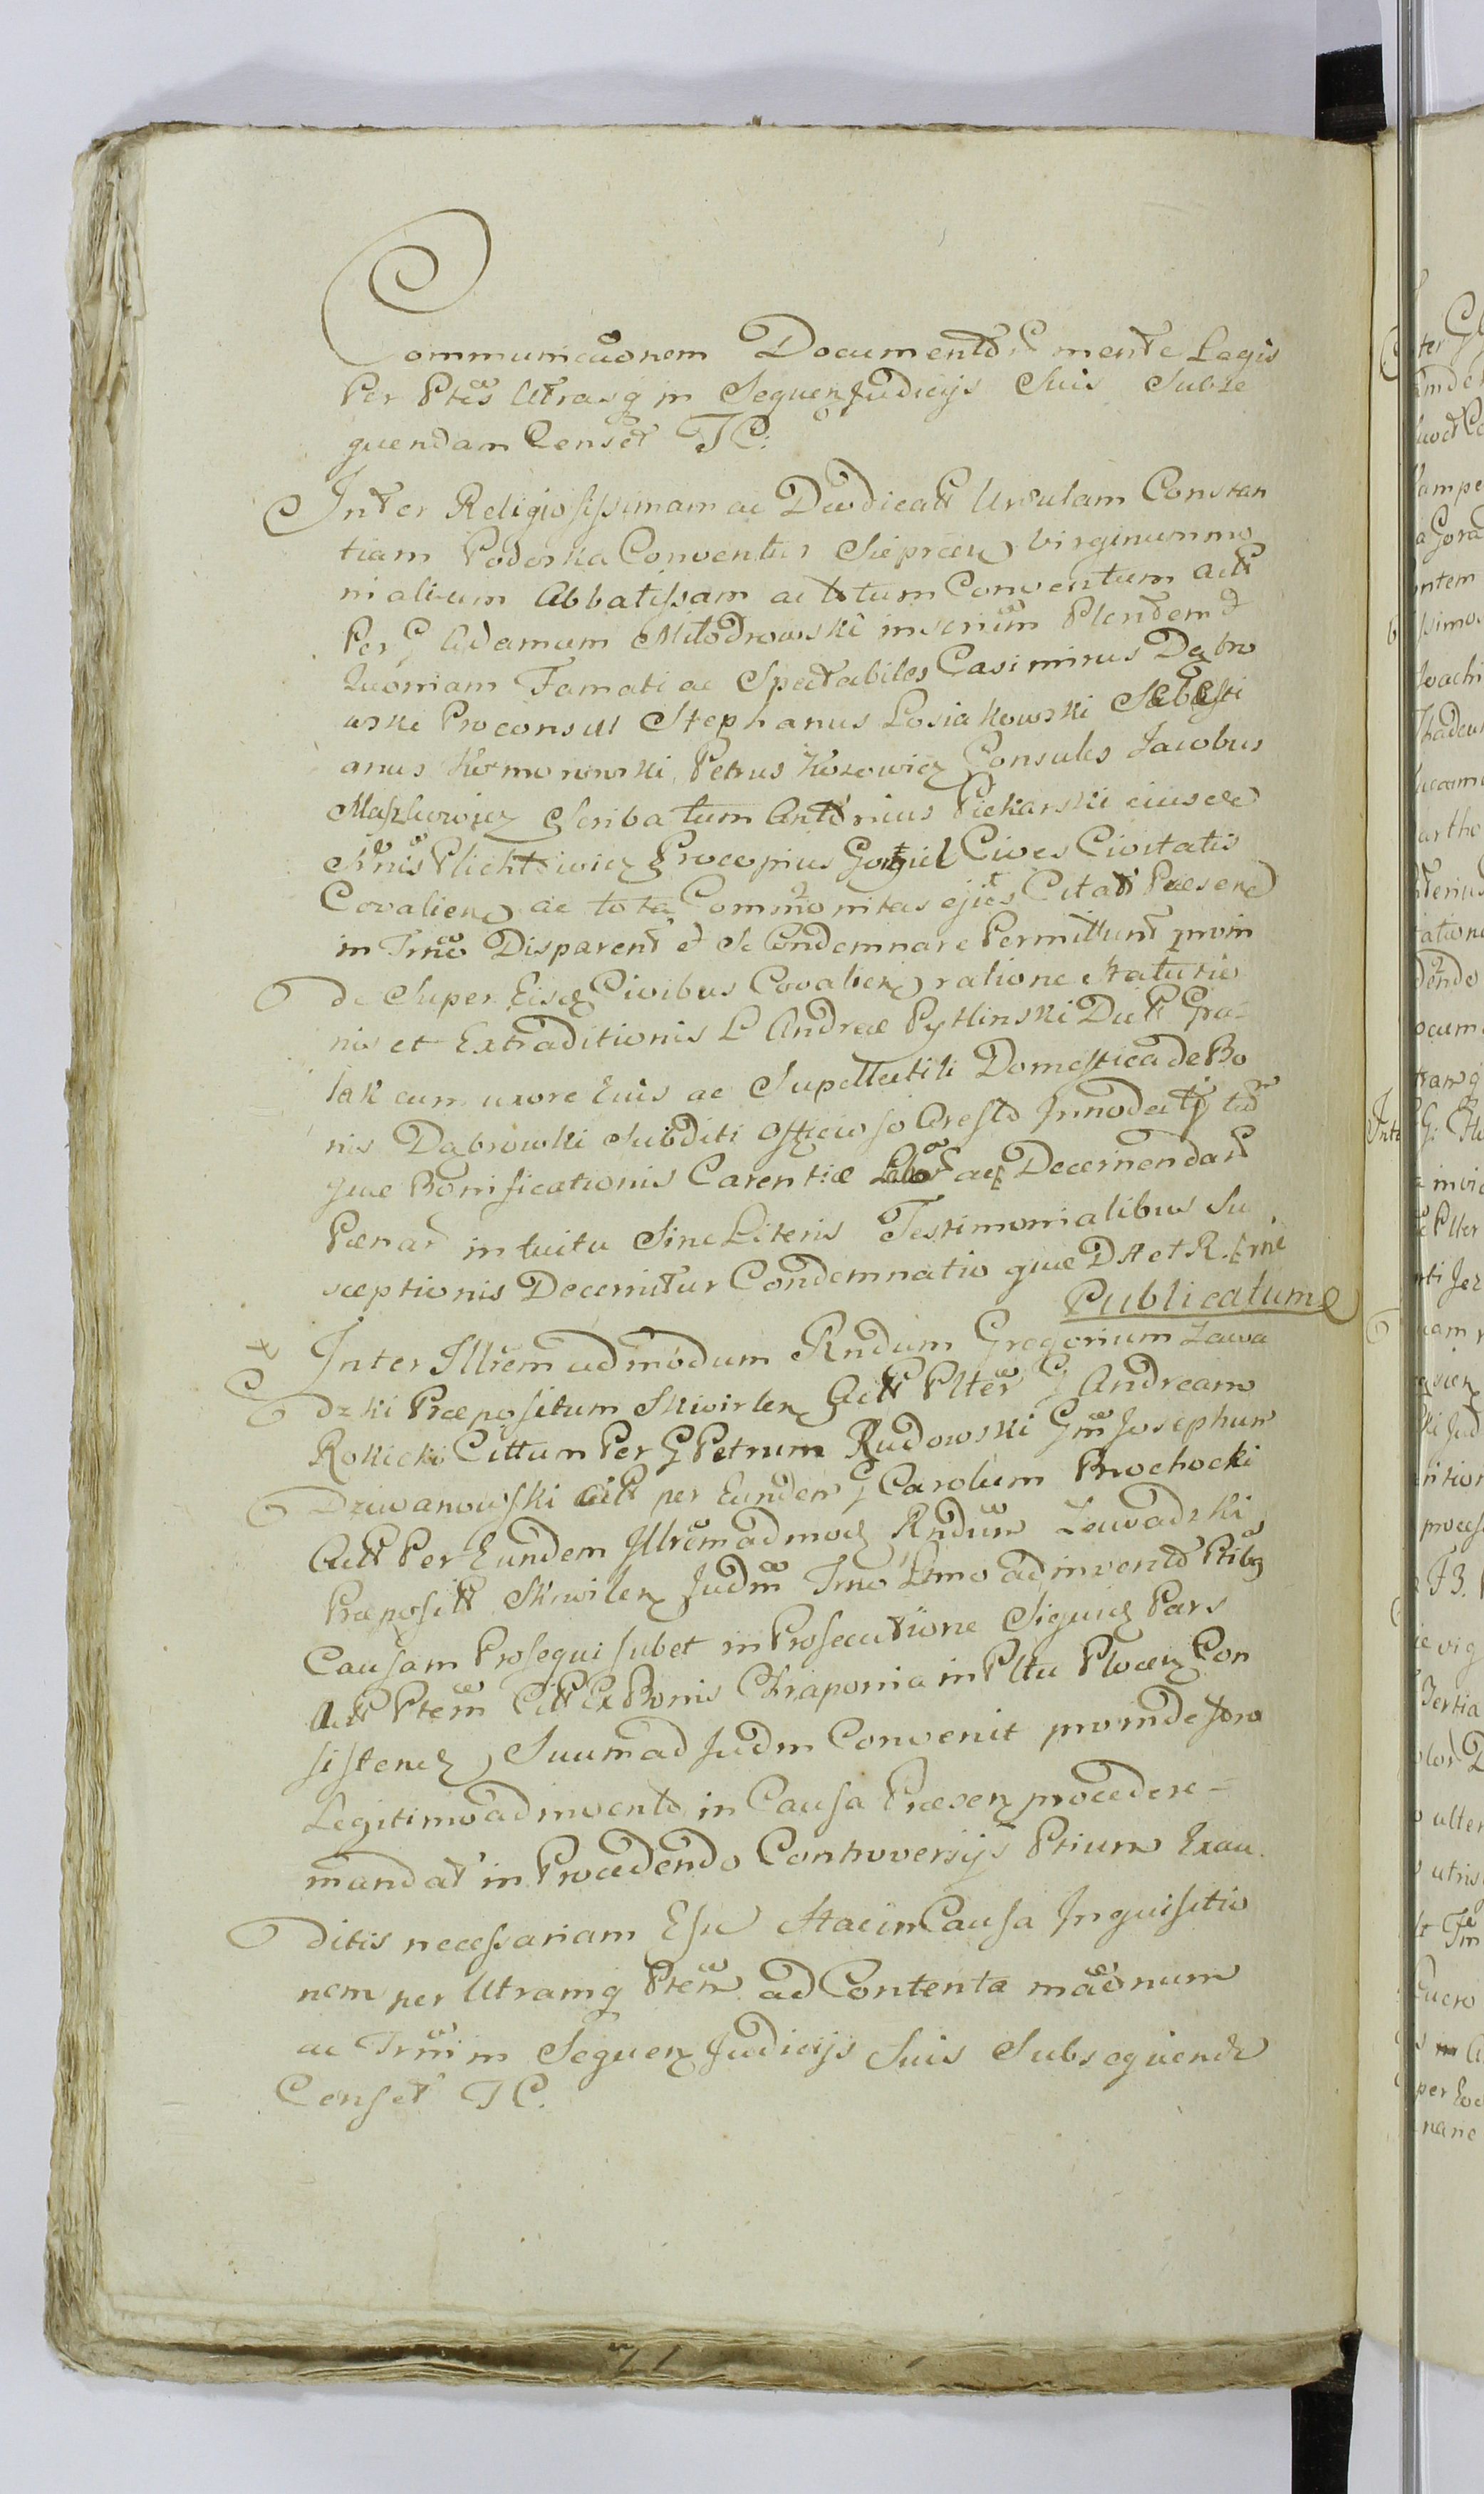 Communicaonem Documentor mente Legis
Per Ptes Utrasq in Sequen Judicijs Suis Subse
quendam Censet TC:
Inter Religiosissimam ac Deodicatt Ursulam Constan
tiam Podoska Conventus Sieprcen Virginum mo
nialium Abbatissam ac totum Conventum Actt
Per G Adamum Mlodzowski inscrium Pltendem et
Quoniam Famati ac Spectabiles Casimirus Dąbro
wski Proconsul Stephanus Losiakowski Sebasti
anus Petrus Kozowicz Consules Jacobus
Maszlowicz Scriba tum Antonius Piekarski eiusde
Plichtowicz Procopius Cives Civitatis
Covalien ac tota Commonitas ejus Citatt Praesen
in Trno Disparent et Se Condemnare Permittunt proin
de Super Eisd Civibus Covalien ratione Statutio
nis et Extraditionis L Andreae Pytlinski Dictt Gra-
lak cum uxore Eius ac Supellectili Domestica de Bo
nis Dąbrowki Subditi Officioso Aresto Innodati
que Bonificationis Carentiae Labor acz Decernendar
Paenar intuitu Sine Literis Testimonialibus Su
sceptionis Decernitur Condemnatio quae DA et R.
Publicatum
Inter Illrem admodum Rndum Gregorium Zawa
dzki Praepositum Skwirlen Actt Plter G Andream
Rokicki Cittum Per G Petrum Rudowski Gm Josephum
Dziwanowski Citt per Eundem G Carolum Prochocki
Actt Per Eundem Illrem admod Rndum Zawadzki
Praepositt Skwilen Judm Trno Ltmo adinvento Ptibq
Causam Prosequi jubet in Prosecutione Siquid Pars
Actt Ptem Citt Ex Bonis Chraponia in Pltu Plocen Con
sisten Suum ad Judm Convenit proinde foro
Legitimo adinvento in Causa Praesen procedere-
mandat in Procedendo Controversijs Ptium Exau
ditis necessariam Esse Hac in Causa Inquisitio
nem per Utramq Ptem ad Contenta maonum
ac Trni in Sequen Judicijs Suis Subsequende
Censet TC.